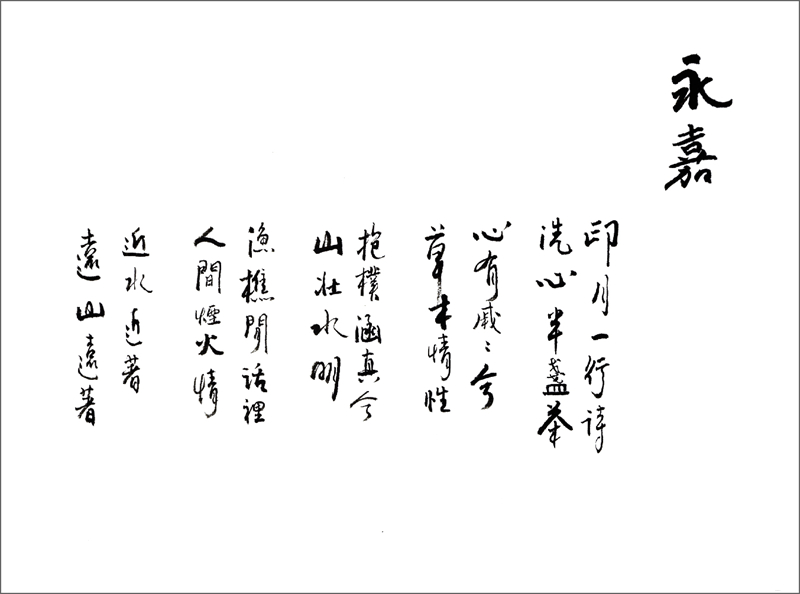 永嘉
印月一行诗
洗心半盏茶
心有戚〻兮
草木情性
抱樸涵真兮
山壮水明
漁樵閒话裡
人間煙火情
近水近著
遠山遠著